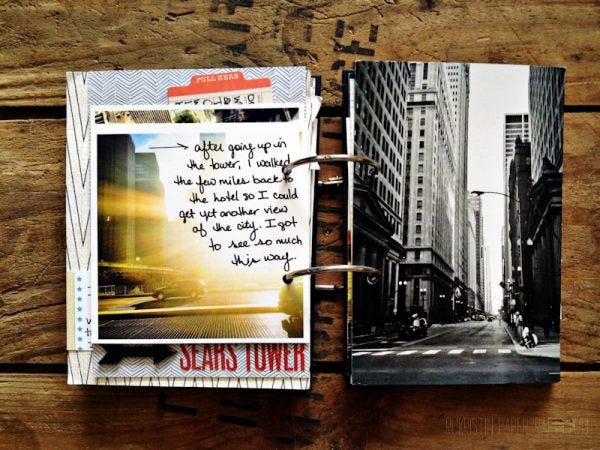 PULL HERE
after going up in
the tower, i walked
the few miles back to
the hotel so I could
get yet another view
of the city. I got
to see so much
this way.
SEARS TOWER